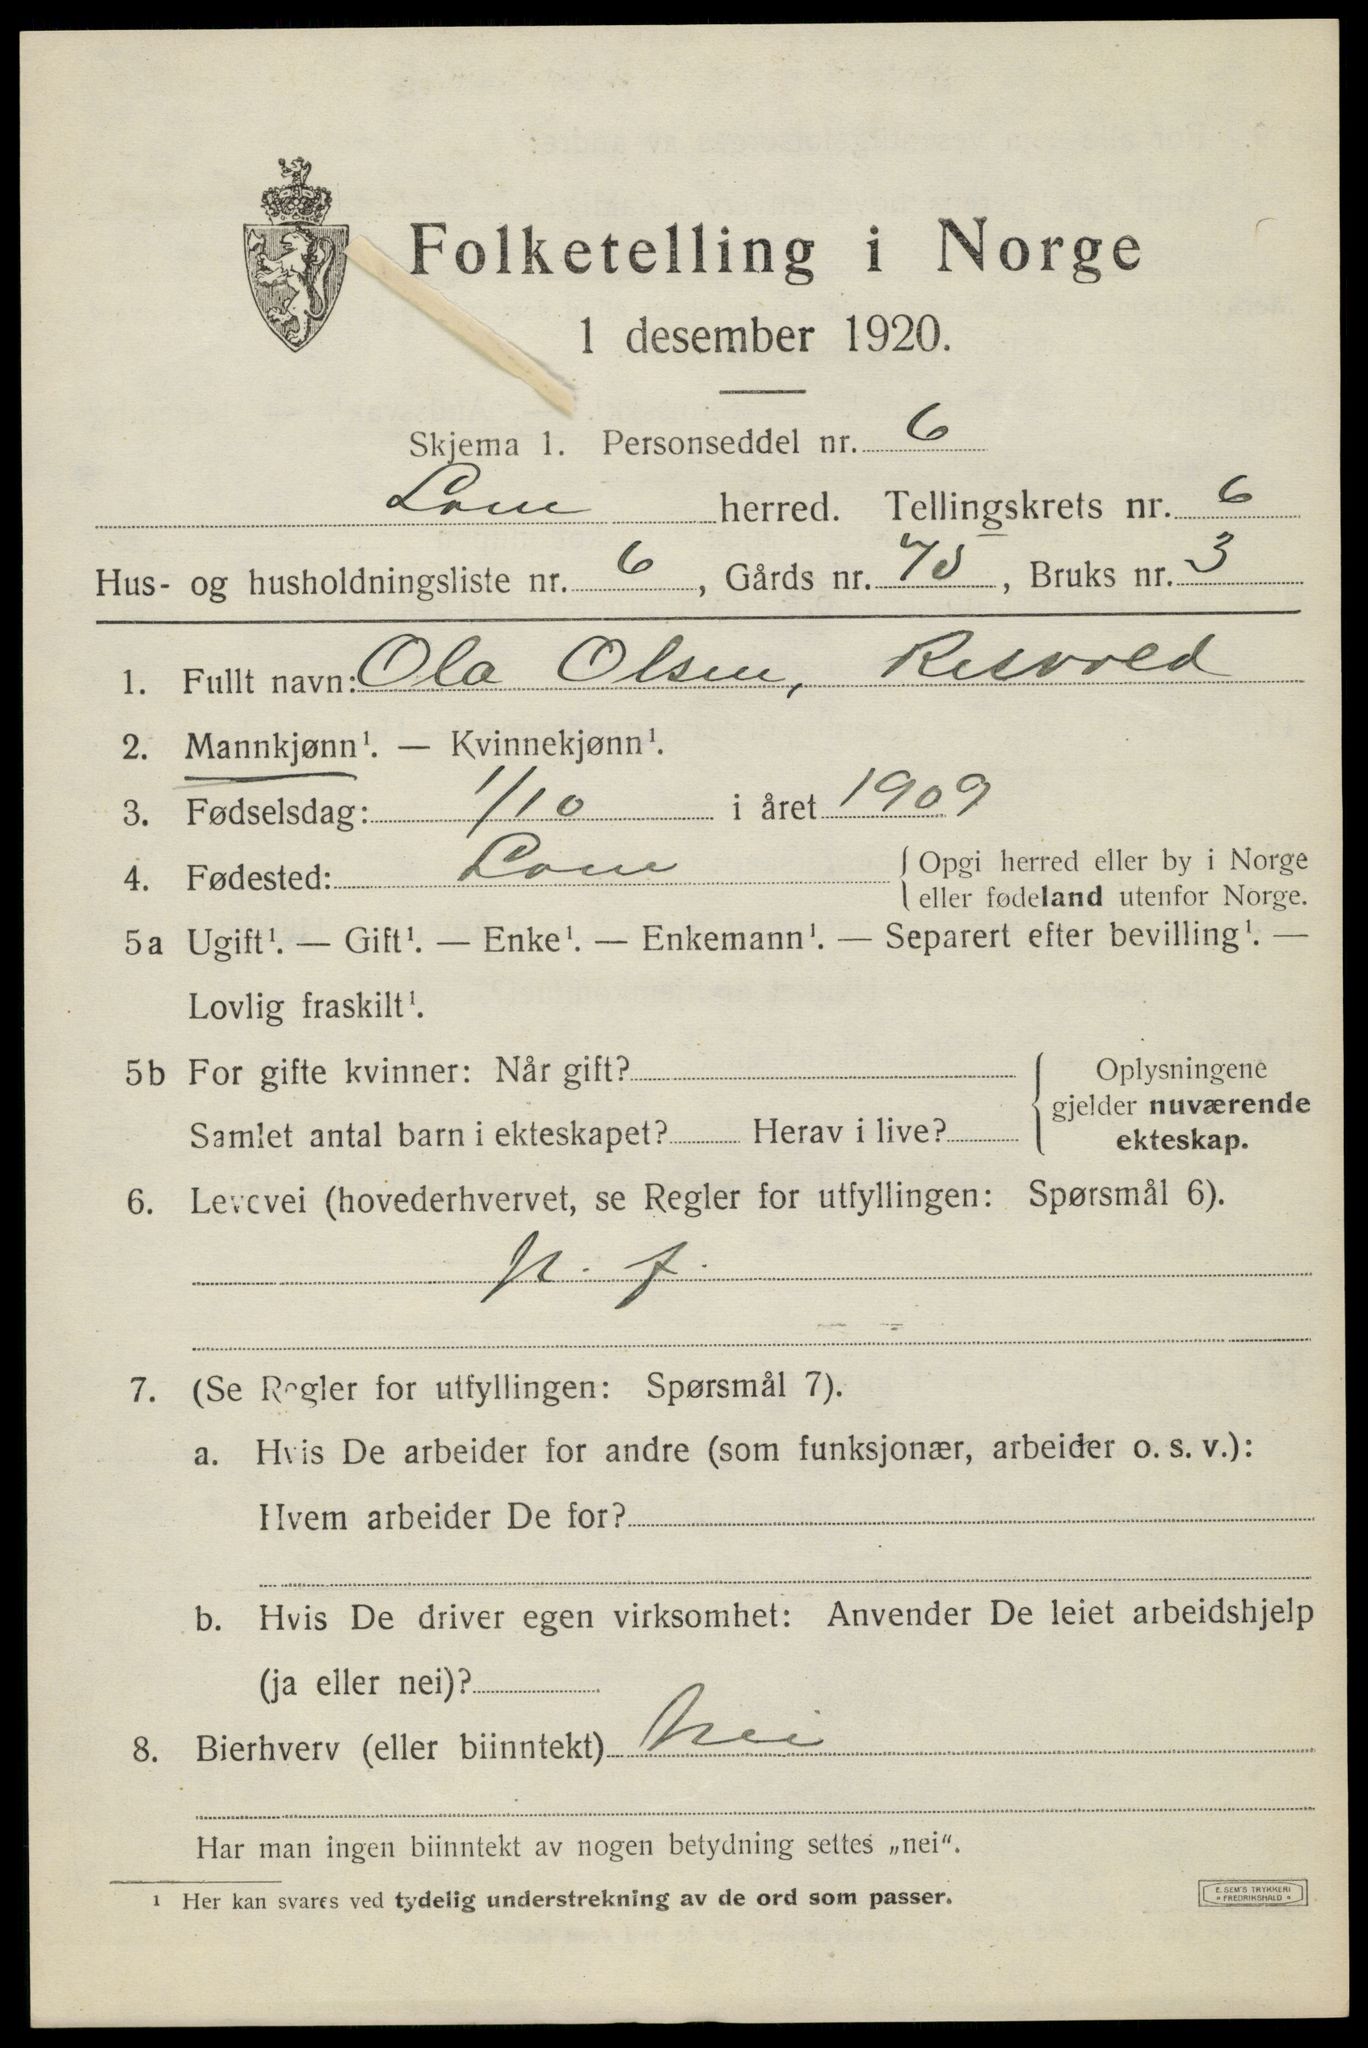 Folketelling i Norge
1 desember 1920.
Skjema 1. Personseddel nr. 6
Lom herred. Tellingskrets nr. 6
Hus- og husholdningsliste nr. 6, Gårds nr. 75, Bruks nr. 3
1. Fullt navn: Ola Olsen, Risvold
2. Mannkjønn¹. — Kvinnekjønn¹.
3. Fødselsdag: 1/10 i året 1909
4. Fødested: Lom { Opgi herred eller by i Norge
eller fødeland utenfor Norge.
5a Ugift¹. — Gift¹. — Enke¹. — Enkemann¹. — Separert efter bevilling¹. —
Lovlig fraskilt¹.
5b For gifte kvinner: Når gift?
Samlet antal barn i ekteskapet? Herav i live?
{ Oplysningene
gjelder nuværende
ekteskap.
6. Levevei (hovederhvervet, se Regler for utfyllingen: Spørsmål 6).
H. f.
7. (Se Regler for utfyllingen: Spørsmål 7).
a. Hvis De arbeider for andre (som funksjonær, arbeider o. s. v.):
Hvem arbeider De for?
b. Hvis De driver egen virksomhet: Anvender De leiet arbeidshjelp
(ja eller nei)?
8. Bierhverv (eller biinntekt) Nei
Har man ingen biinntekt av nogen betydning settes „nei“.
¹ Her kan svares ved tydelig understrekning av de ord som passer.
E. SEM'S TRYKKERI
FREDRIKSHALD